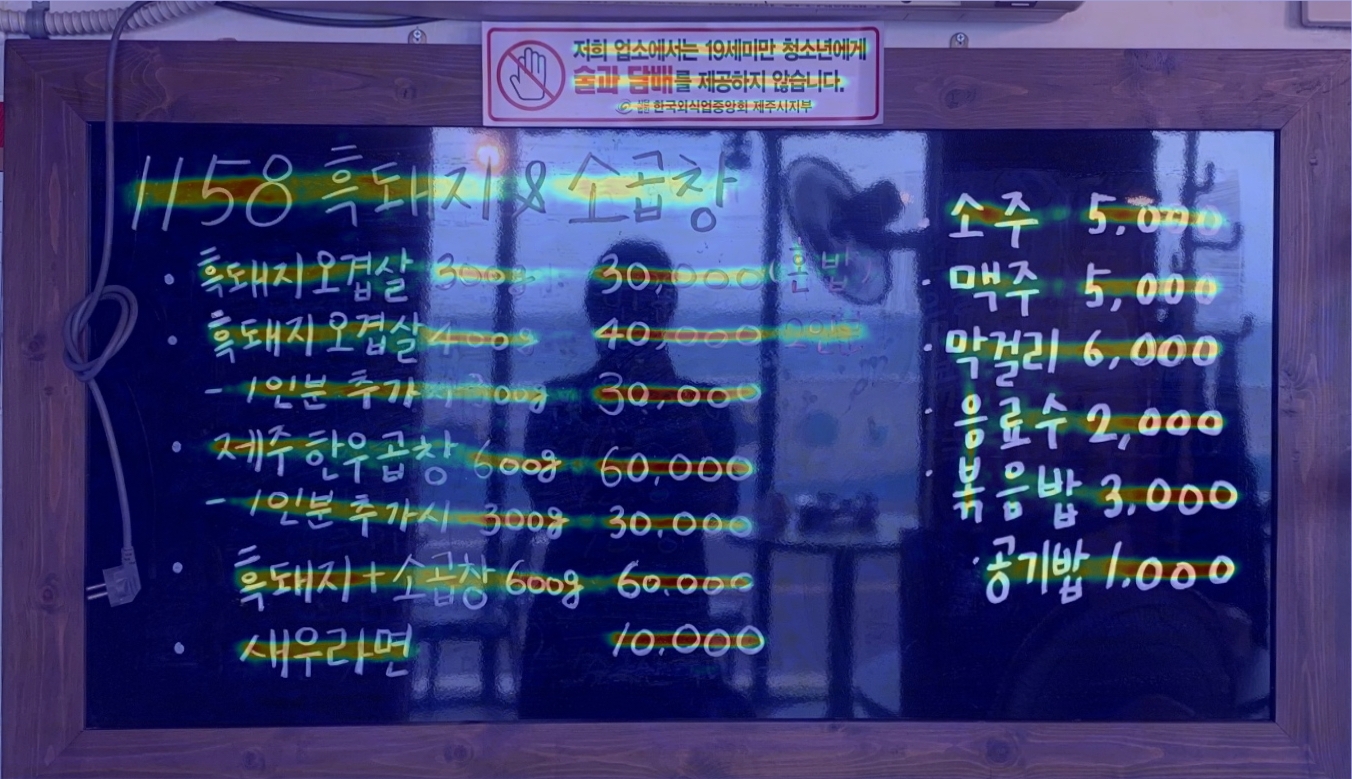 저희 업소에서는 19세미만 청소년에게
술과 담배를 제공하지 않습니다.
한국외식업중앙회 제주시지부
1158 흑돼지 & 소곱창
· 흑돼지오겹살 300g 30,000 (혼밥)
· 흑돼지오겹살 400g 40,000 2인분
- 1인분 추가시 300g 30,000
· 제주한우곱창 600g 60,000
- 1인분 추가시 300g 30,000
· 흑돼지+소곱창 600g 60,000
· 새우라면 10,000
소주 5,000
· 맥주 5,000
· 막걸리 6,000
· 음료수 2,000
· 볶음밥 3,000
· 공기밥 1,000